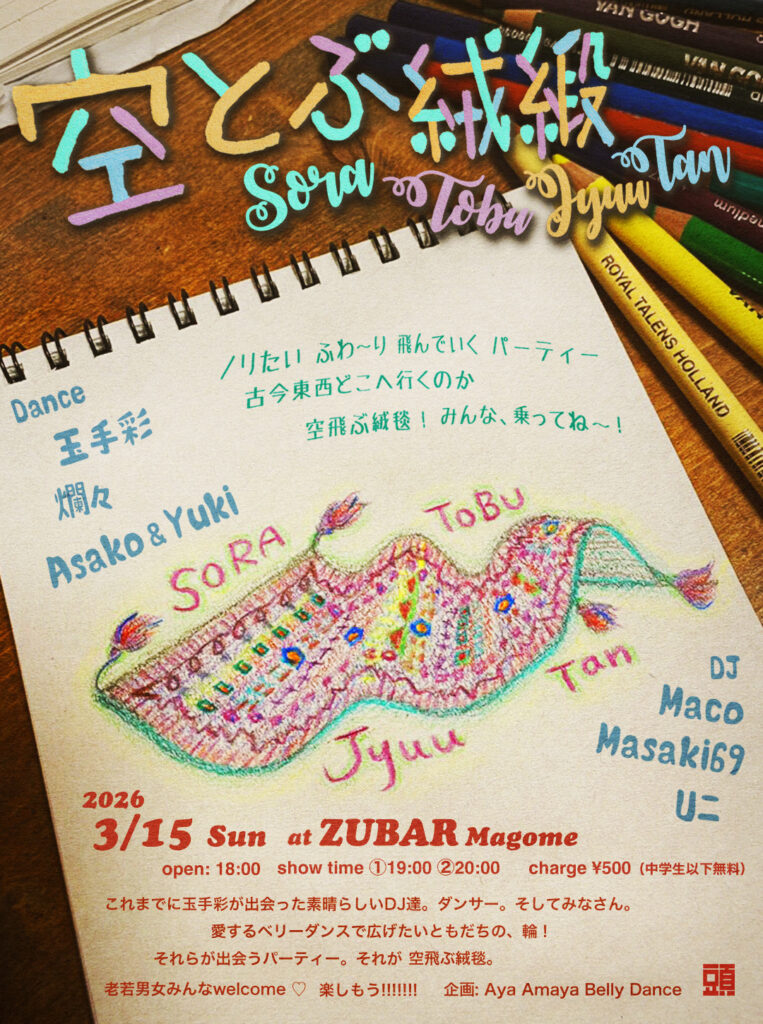 空とぶ絨緞
Sora Tobu Jyuu Tan
VAN GOGH
VAN GO
medium
VAN
ROYAL TALENS HOLLAND
ノリたい ふわ〜り 飛んでいく パーティー
古今東西どこへ行くのか
空飛ぶ絨毯！ みんな、乗ってね〜！
Dance
玉手彩
爛々
Asako & Yuki
SORA
ToBU
Jyuu
Tan
DJ
Maco
Masaki69
Uニ
2026
3/15 Sun at ZUBAR Magome
open: 18:00 show time ①19:00 ②20:00 charge ¥500（中学生以下無料）
これまでに玉手彩が出会った素晴らしいDJ達。ダンサー。そしてみなさん。
愛するベリーダンスで広げたいともだちの、輪！
それらが出会うパーティー。それが 空飛ぶ絨毯。
老若男女みんなwelcome ♡ 楽しもう!!!!!!! 企画: Aya Amaya Belly Dance
頭